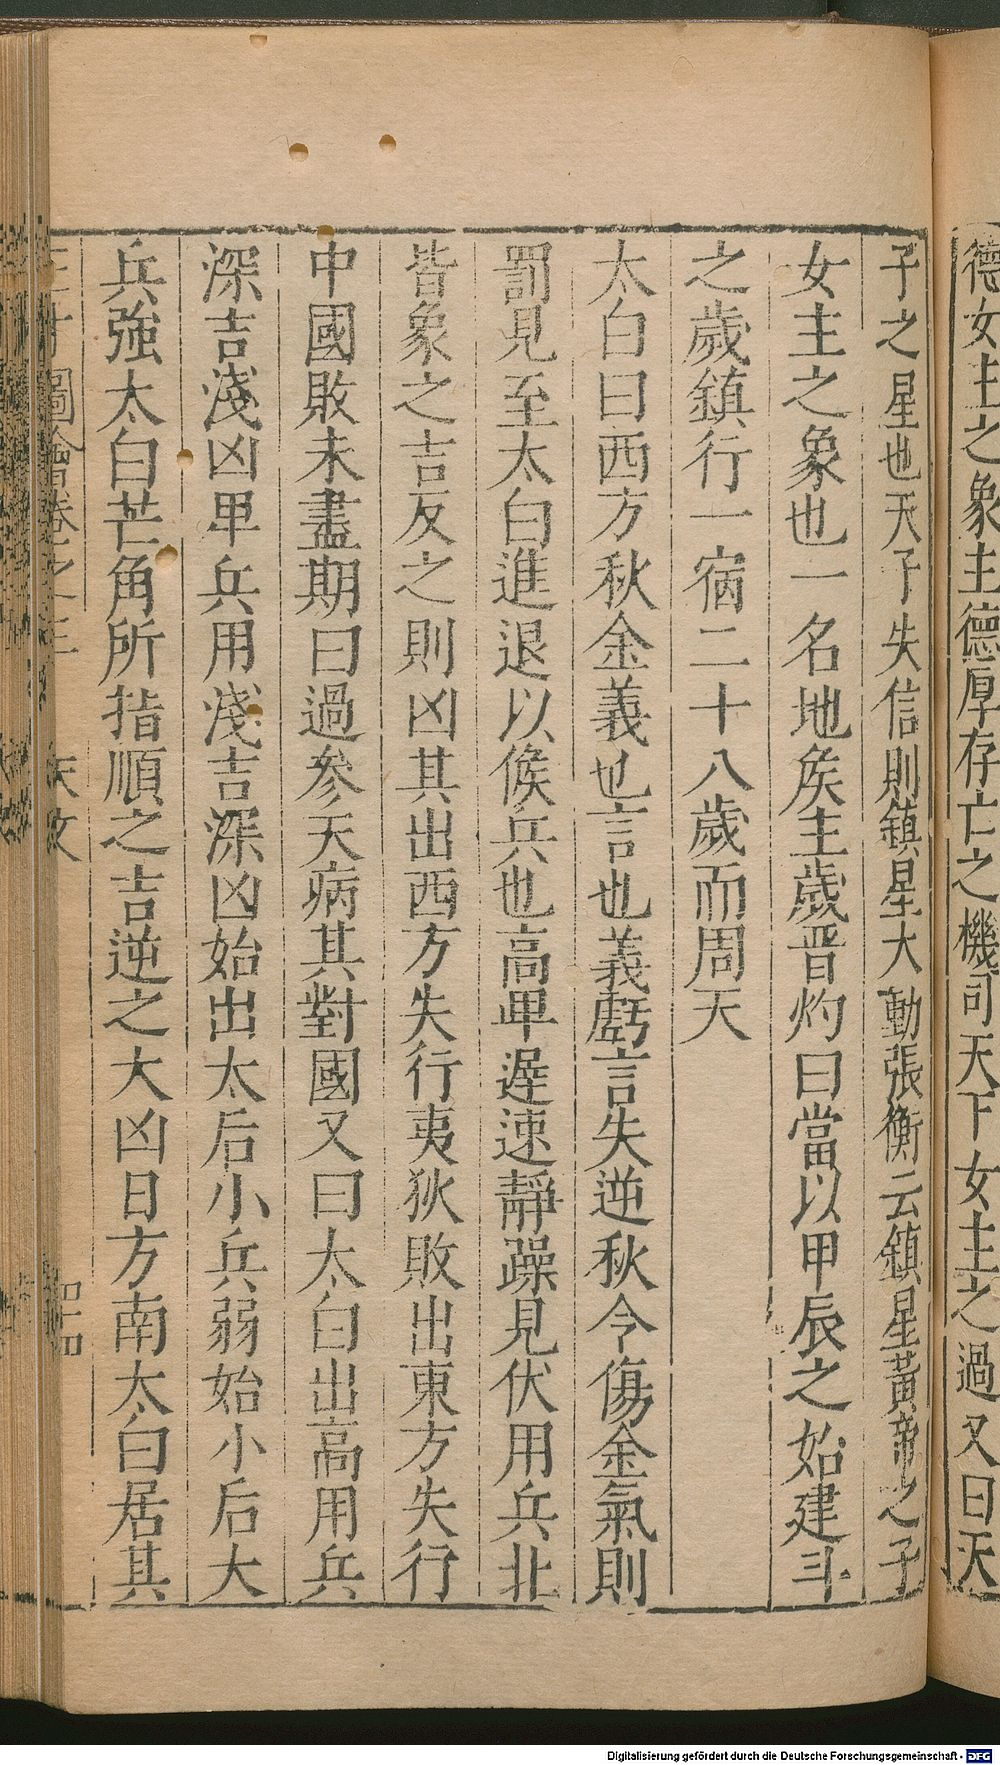 德女主之象主德厚存亡之機司天下女主之過又曰天
子之星也天子失信則鎮星大動張衡云鎮星黃帝之子
女主之象也一名地矦主歲晋灼曰當以甲辰之始建斗
之歲鎮行一宿二十八歲而周天
太白曰西方秋金義也言也義虧言失逆秋令傷金氣則
罰見至太白進退以候兵也高䢍遲速靜躁見伏用兵北
皆象之吉反之則凶其出西方失行夷狄敗出東方失行
中國敗未盡期曰過參天病其對國又曰太白出高用兵
深吉淺凶畢兵用淺吉深凶始出太后小兵弱始小后大
兵強太白芒角所指順之吉逆之大凶日方南太白居其
圖會卷之 天文
Digitalisierung gefördert durch die Deutsche Forschungsgemeinschaft - DFG